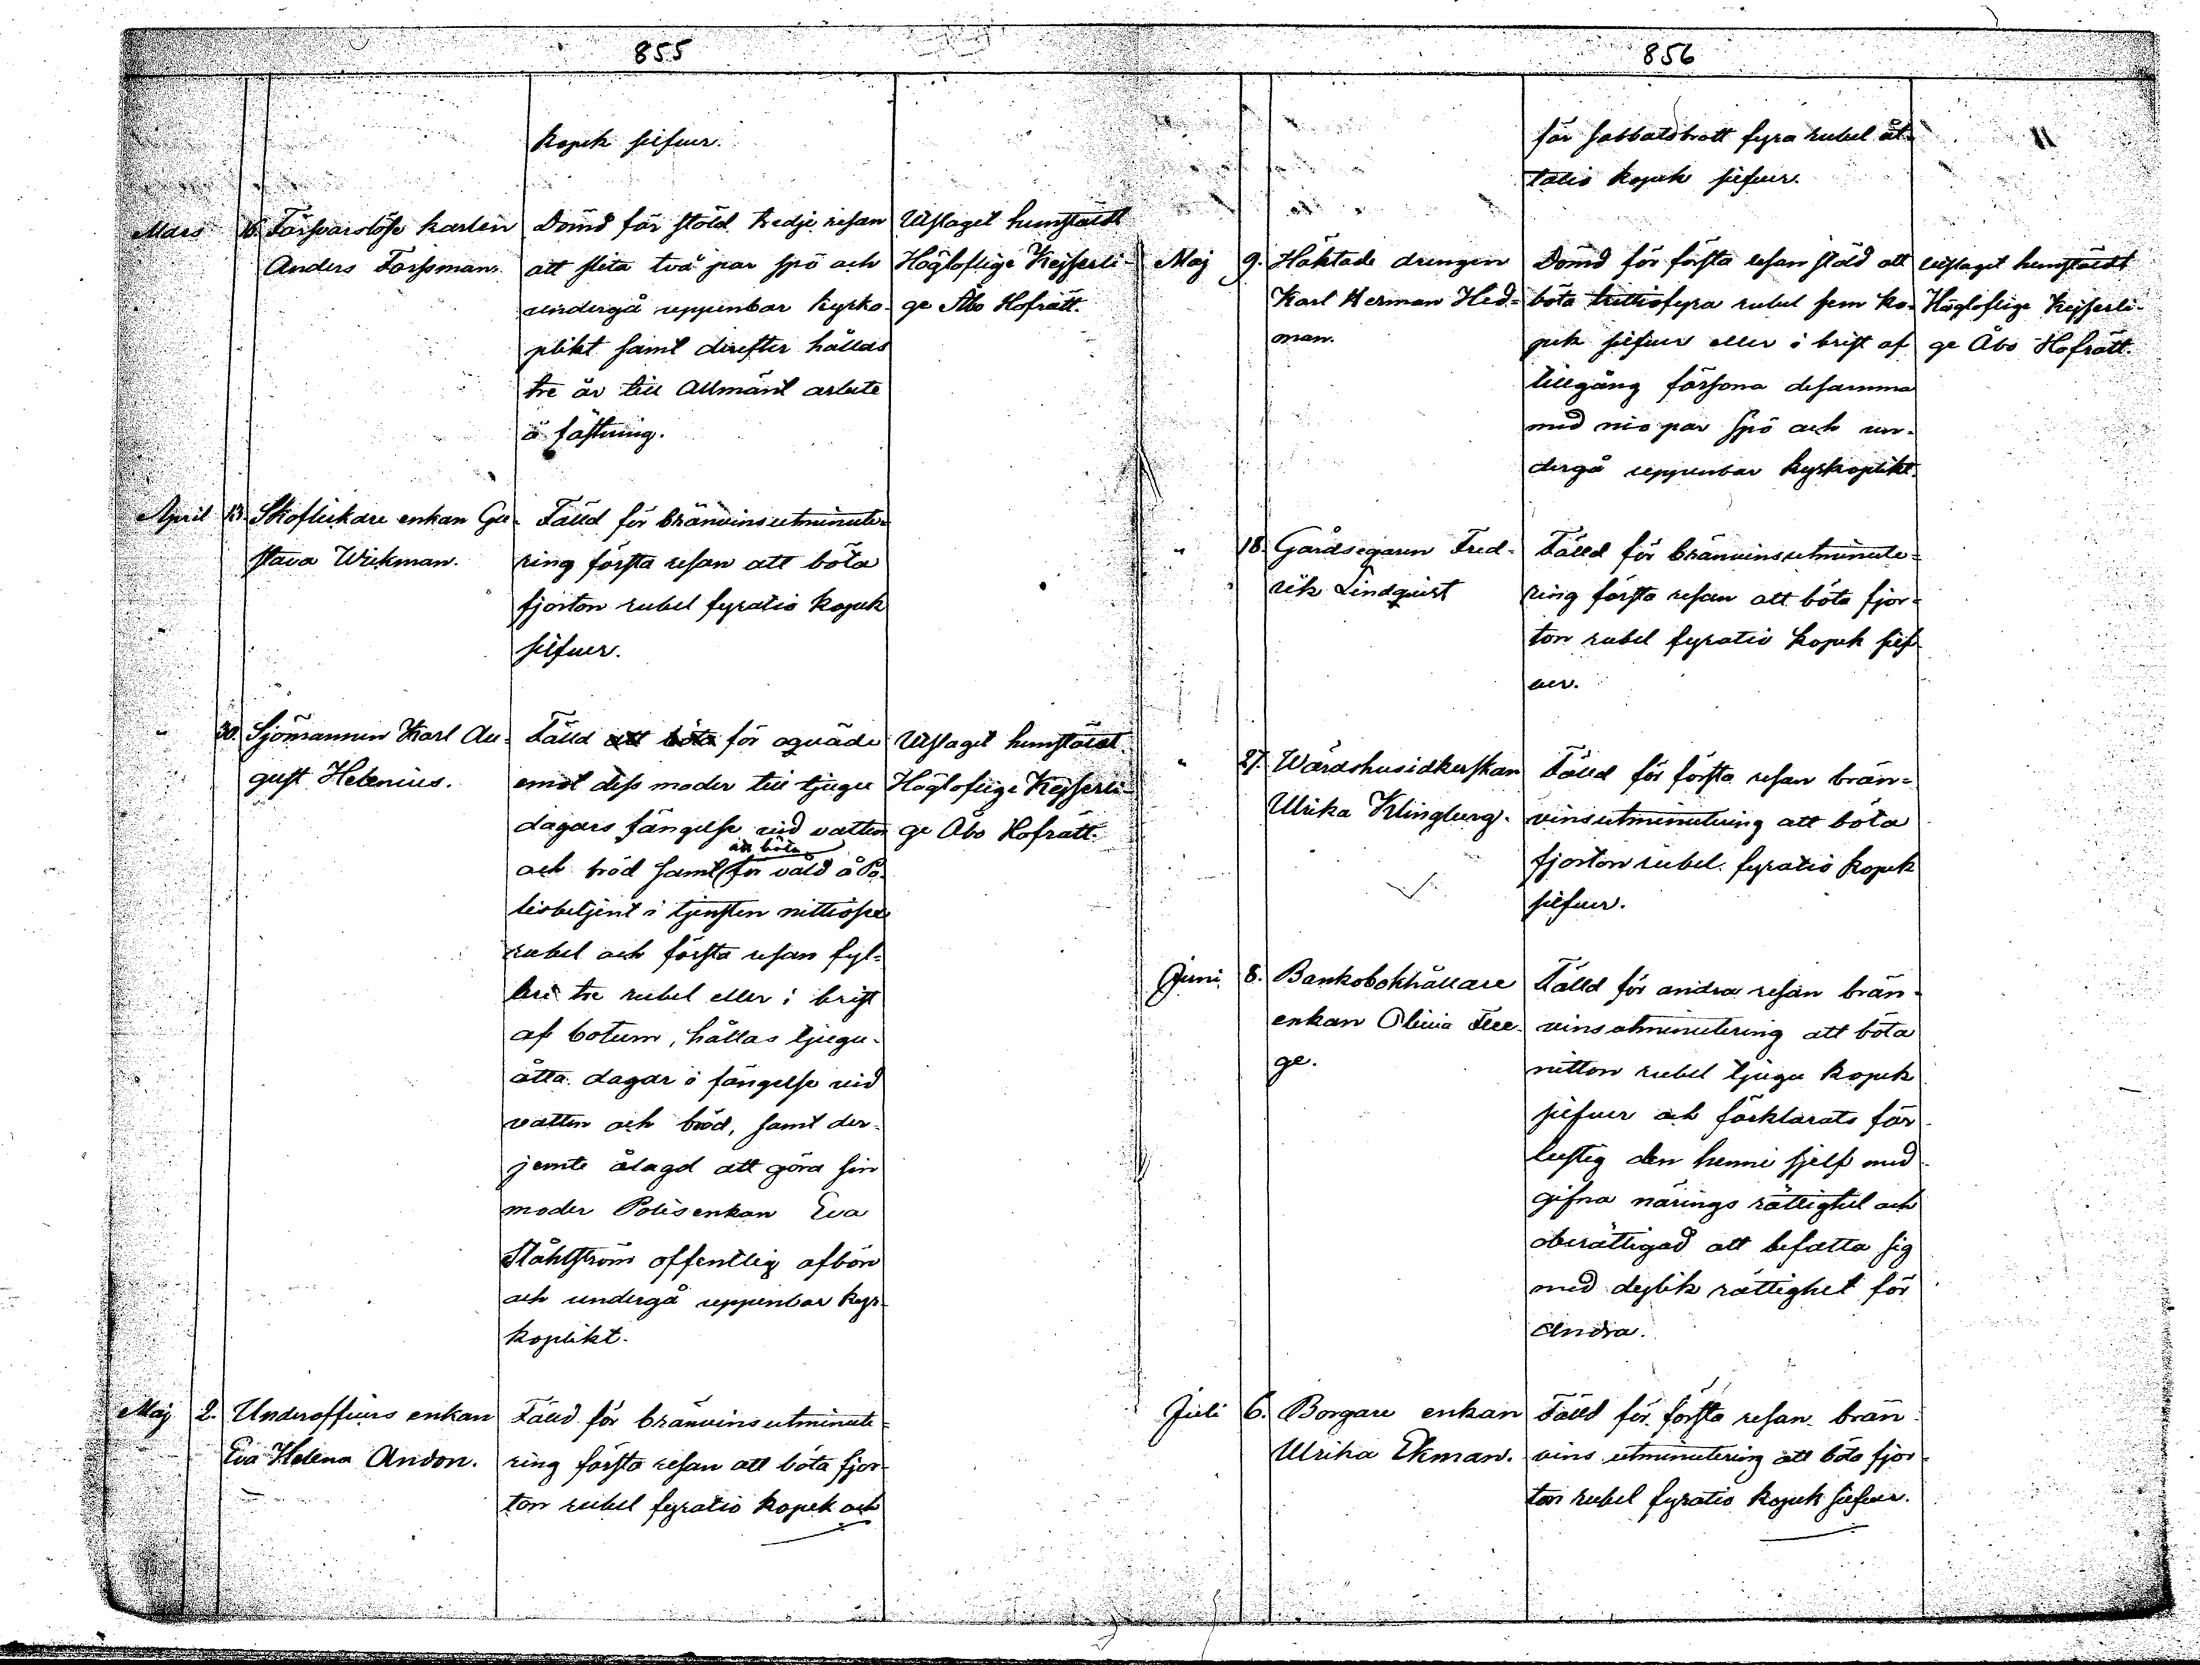 855
kopek silfver.
Mars 16. Försvarslöse karlen
Anders Forssman.
Dömd för stöld tredje resan
att slita två par spö och
undergå uppenbar kyrko-
plikt samt derefter hållas
tre år till Allmänt arbete
å fästning.
Utslaget hemstäldt
Högloflige Kejserli-
ge Åbo Hofrätt.
April 13. Skoflickare enkan Gu-
stava Wickman.
Fälld för bränvinsutminute-
ring första resan att böta
fjorton rubel fyratio kopek
silfver.
" 30. Sjömannen Karl Au-
gust Helenius.
Fälld att böta för oqväde
emot dess moder till tjugu
dagars fängelse vid vatten
att böta
och bröd samt för våld å Po-
lisbetjent i tjensten nittiosex
rubel och första resan fyl-
leri tre rubel eller i brist
af botum, hållas tjugu-
åtta dagar i fängelse vid
vatten och bröd, samt der-
jemte ålagd att göra sin
moder Polisenkan Eva
Ståhlström offentlig afbön
och undergå uppenbar kyr-
koplikt.
Utslaget hemstäldt
Högloflige Kejserli-
ge Åbo Hofrätt.
Maj 2. Underofficers enkan
Eva Helena Andon.
Fälld för bränvinsutminute-
ring första resan att böta fjor-
ton rubel fyratio kopek och
856
för sabbatsbrott fyra rubel åt-
tatio kopek silfver.
Maj 9. Häktade drengen
Karl Herman Hed-
man.
Dömd för första resan stöld att
böta trettiofyra rubel fem ko-
pek silfver eller i brist af
tillgång försona desamma
med nio par spö och un-
dergå uppenbar kyrkoplikt.
Utslaget hemstäldt
Högloflige Kejserli-
ge Åbo Hofrätt.
" 18. Gårdsegaren Fred-
rik Lindqvist
Fälld för bränvinsutminute-
ring första resan att böta fjor-
ton rubel fyratio kopek silf-
ver.
" 27. Wärdshusidkerskan
Ulrika Klingberg.
Fälld för första resan brän-
vinsutminutering att böta
fjorton rubel fyratio kopek
silfver.
Juni 8. Bankobokhållare
enkan Olivia
ge.
Fälld för andra resan brän-
vinsutminutering att böta
nitton rubel tjugu kopek
silfver och förklarats för-
lustig den henne sjelf med-
gifna närings rättighet och
oberättigad att befatta sig
med dylik rättighet för
Andra.
Juli 6. Borgare enkan
Ulrika Ekman.
Fälld för första resan brän-
vins utminutering att böta fjor-
ton rubel fyratio kopek silfver.